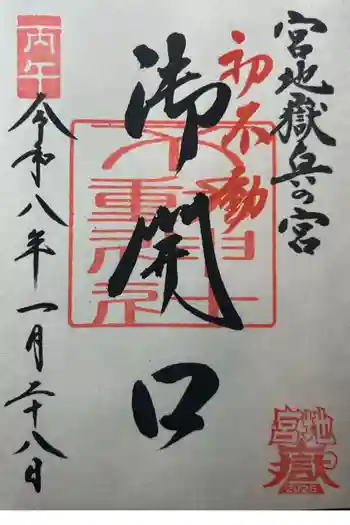 宮地嶽兵の宮
初不動
御開口
丙午
令和八年一月二十八日
宮地嶽
2026